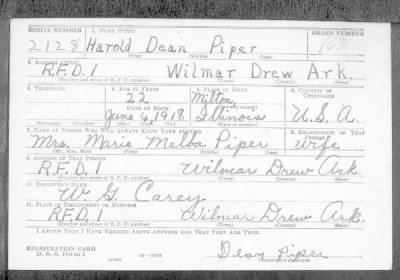 SERIAL NUMBER 1. NAME (Print) ORDER NUMBER
2128 Harold Dean Piper
(First) (Middle) (Last)
2. ADDRESS (Print)
R.F.D. 1 Wilmar Drew Ark.
(Number and street or R. F. D. number) (Town) (County) (State)
3. TELEPHONE 4. AGE IN YEARS 5. PLACE OF BIRTH 6. COUNTRY OF CITIZENSHIP
22 Milton,
DATE OF BIRTH (Town or county)
June 4, 1918 Illinois U.S.A.
(Exchange) (Number) (Mo.) (Day) (Yr.) (State or country)
7. NAME OF PERSON WHO WILL ALWAYS KNOW YOUR ADDRESS 8. RELATIONSHIP OF THAT PERSON
Mrs. Marie Melba Piper Wife
(Mr., Mrs., Miss) (First) (Middle) (Last)
9. ADDRESS OF THAT PERSON
R.F.D. 1 Wilmar Drew Ark.
(Number and street or R. F. D. number) (Town) (County) (State)
10. EMPLOYER'S NAME
W. G. Carey
11. PLACE OF EMPLOYMENT OR BUSINESS
R.F.D. 1 Wilmar Drew Ark.
(Number and street or R. F. D. number) (Town) (County) (State)
I AFFIRM THAT I HAVE VERIFIED ABOVE ANSWERS AND THAT THEY ARE TRUE.
REGISTRATION CARD
D. S. S. Form 1 (over) Dean Piper